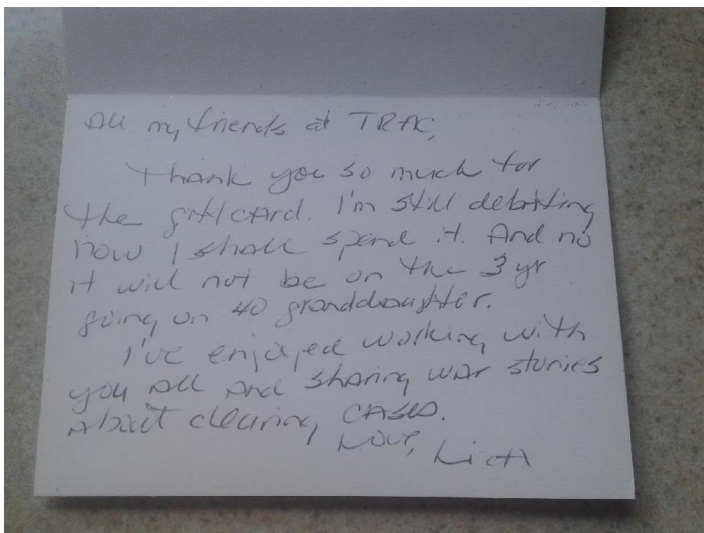 All my friends at TRAC,
Thank you so much for
the gift card. I'm still debating
how I shall spend it. And no
it will not be on the 3 yr
going on 40 granddaughter.
I've enjoyed working with
you all and sharing war stories
about clearing cases.
Love,